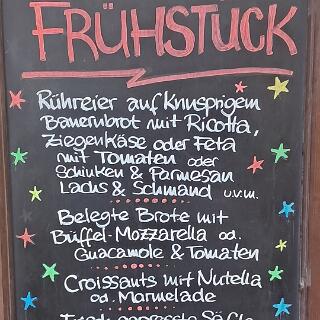 FRÜHSTÜCK
Rühreier auf Knusprigem
Bauernbrot mit Ricotta,
Ziegenkäse oder Feta
mit Tomaten oder
Schinken & Parmesan
Lachs & Schmand u.v.m.
Belegte Brote mit
Büffel-Mozzarella od.
Guacamole & Tomaten
Croissants mit Nutella
od. Marmelade